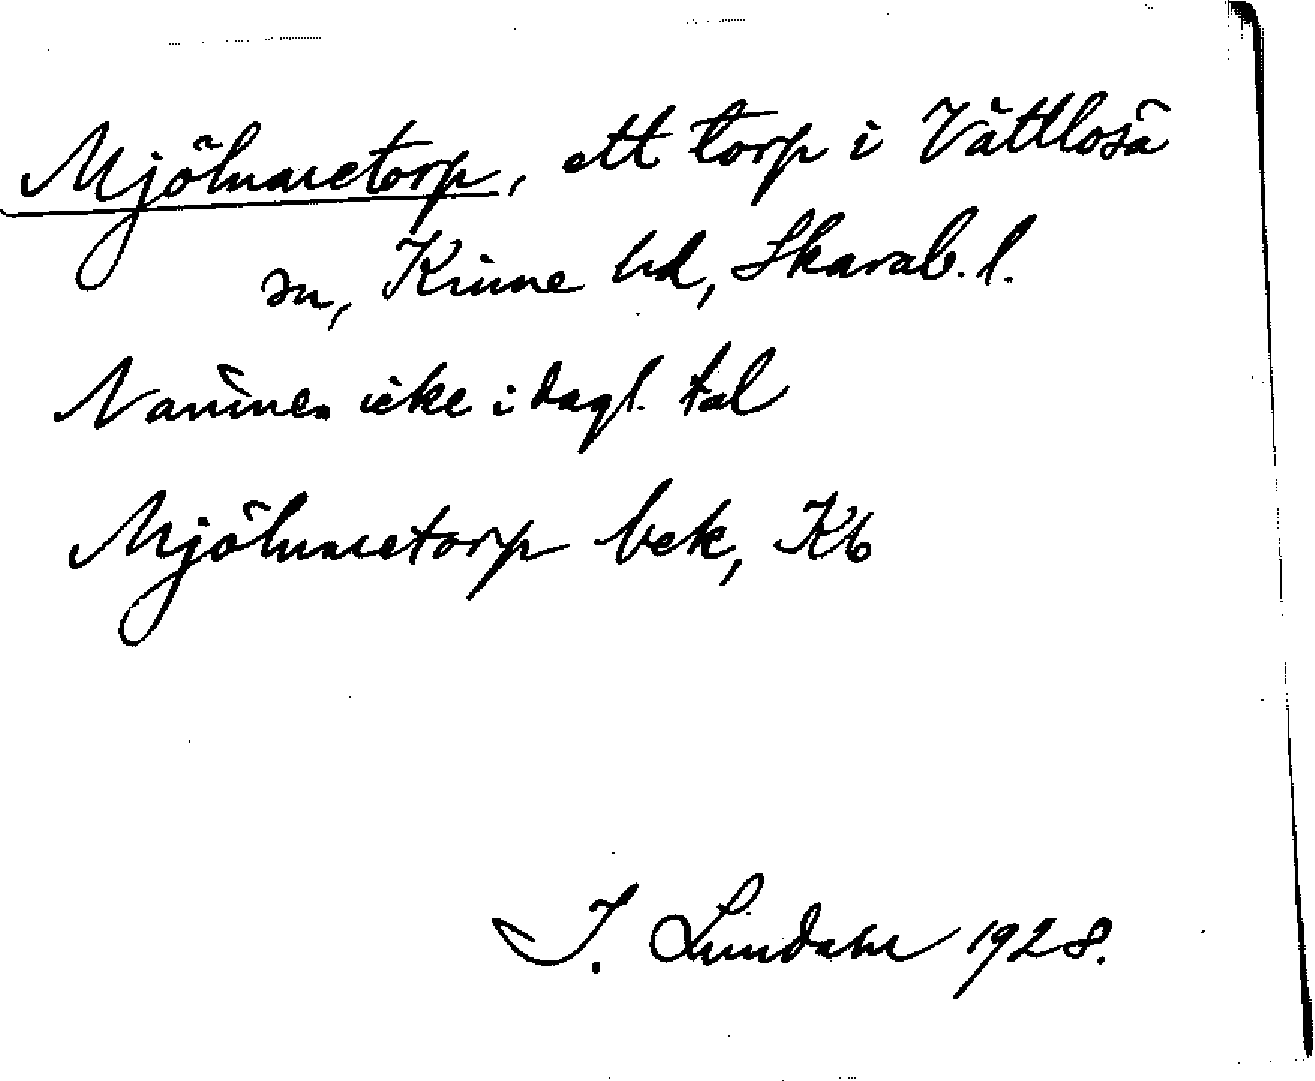 Mjölnaretorp, ett torp i Vättlösa
sn, Kinne hd, Skarab. l.
Namnen icke i dagl. tal
Mjölnaretorp bek, Kb
I. Lundahl 1928.